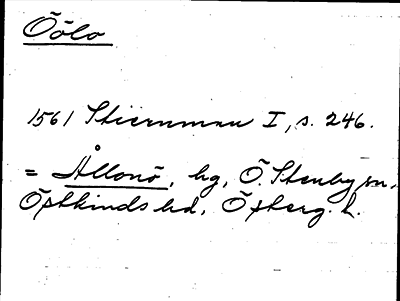 Öölo
1561 Stiernman I, s. 246.
= Ållonö, hg, Ö. Stenby sn,
Östkinds hd, Österg. l.